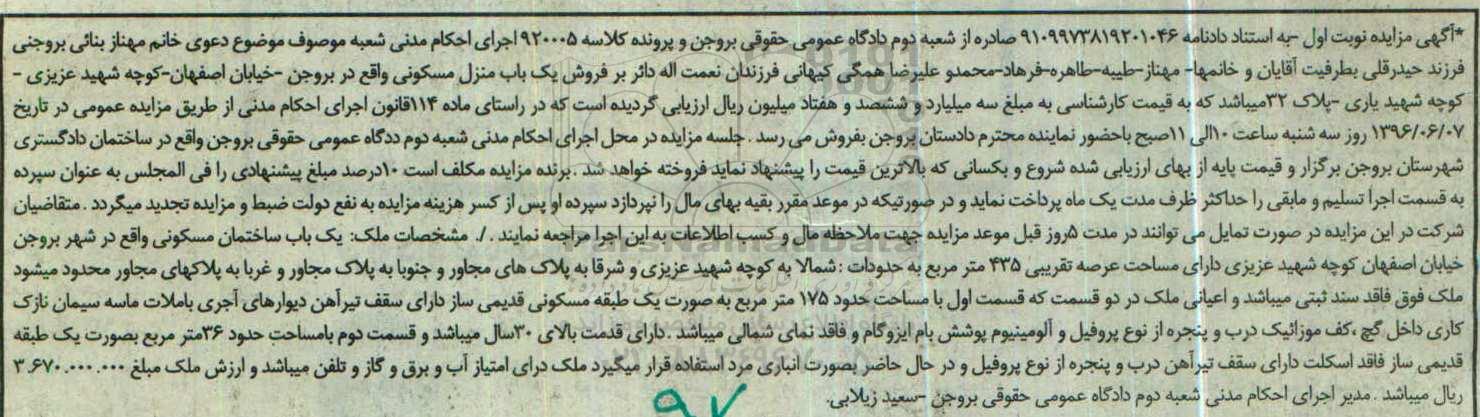 *آگهی مزایده نوبت اول -به استناد دادنامه ۹۱۰۹۹۷۳۸۱۹۲۰۱۰۴۶ صادره از شعبه دوم دادگاه عمومی حقوقی بروجن و پرونده کلاسه ۹۲۰۰۰۵ اجرای احکام مدنی شعبه موصوف موضوع دعوی خانم مهناز بنائی بروجنی
فرزند حیدرقلی بطرفیت آقایان و خانمها- مهناز-طیبه-طاهره-فرهاد-محمدو علیرضا همگی کیهانی فرزندان نعمت اله دائر بر فروش یک باب منزل مسکونی واقع در بروجن -خیابان اصفهان-کوچه شهید عزیزی -
کوچه شهید یاری -پلاک ۳۲میباشد که به قیمت کارشناسی به مبلغ سه میلیارد و ششصد و هفتاد میلیون ریال ارزیابی گردیده است که در راستای ماده ۱۱۴قانون اجرای احکام مدنی از طریق مزایده عمومی در تاریخ
۱۳۹۶/۰۶/۰۷ روز سه شنبه ساعت ۱۰الی ۱۱صبح باحضور نماینده محترم دادستان بروجن بفروش می رسد . جلسه مزایده در محل اجرای احکام مدنی شعبه دوم ددگاه عمومی حقوقی بروجن واقع در ساختمان دادگستری
شهرستان بروجن برگزار و قیمت پایه از بهای ارزیابی شده شروع و بکسانی که بالاترین قیمت را پیشنهاد نماید فروخته خواهد شد . برنده مزایده مکلف است ۱۰درصد مبلغ پیشنهادی را فی المجلس به عنوان سپرده
به قسمت اجرا تسلیم و مابقی را حداکثر ظرف مدت یک ماه پرداخت نماید و در صورتیکه در موعد مقرر بقیه بهای مال را نپردازد سپرده او پس از کسر هزینه مزایده به نفع دولت ضبط و مزایده تجدید میگردد . متقاضیان
شرکت در این مزایده در صورت تمایل می توانند در مدت ۵روز قبل موعد مزایده جهت ملاحظه مال و کسب اطلاعات به این اجرا مراجعه نمایند ./. مشخصات ملک: یک باب ساختمان مسکونی واقع در شهر بروجن
خیابان اصفهان کوچه شهید عزیزی دارای مساحت عرصه تقریبی ۴۳۵ متر مربع به حدودات : شمالا به کوچه شهید عزیزی و شرقا به پلاک های مجاور و جنوبا به پلاک مجاور و غربا به پلاکهای مجاور محدود میشود
ملک فوق فاقد سند ثبتی میباشد و اعیانی ملک در دو قسمت که قسمت اول با مساحت حدود ۱۷۵ متر مربع به صورت یک طبقه مسکونی قدیمی ساز دارای سقف تیرآهن دیوارهای آجری باملات ماسه سیمان نازک
کاری داخل گچ ،کف موزائیک درب و پنجره از نوع پروفیل و آلومینیوم پوشش بام ایزوگام و فاقد نمای شمالی میباشد .دارای قدمت بالای ۳۰سال میباشد و قسمت دوم بامساحت حدود ۳۶متر مربع بصورت یک طبقه
قدیمی ساز فاقد اسکلت دارای سقف تیرآهن درب و پنجره از نوع پروفیل و در حال حاضر بصورت انباری مرد استفاده قرار میگیرد ملک درای امتیاز آب و برق و گاز و تلفن میباشد و ارزش ملک مبلغ ۳.۶۷۰.۰۰۰.۰۰۰
ریال میباشد . مدیر اجرای احکام مدنی شعبه دوم دادگاه عمومی حقوقی بروجن -سعید زیلابی.
۹۷